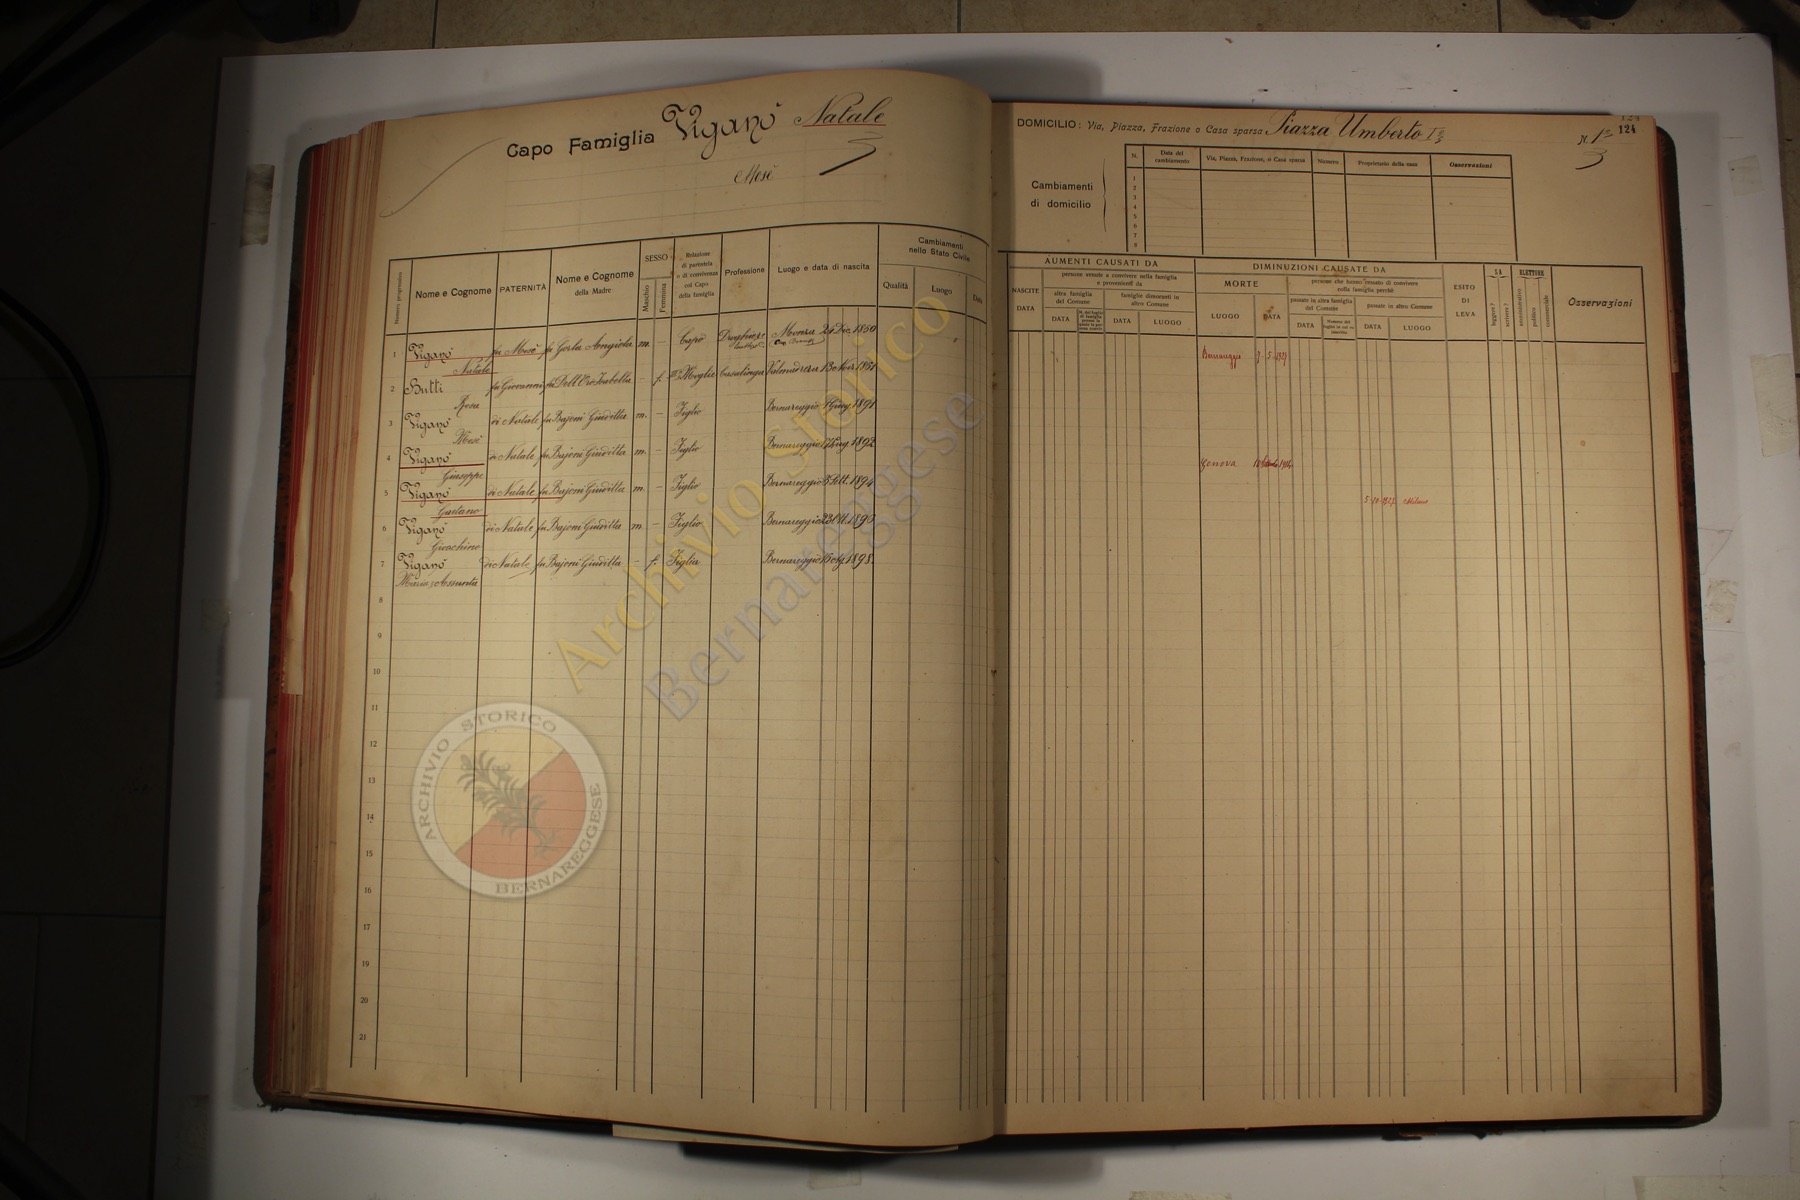 Capo Famiglia Viganò Natale
Mosè
DOMICILIO: Via, Piazza, Frazione o Casa sparsa Piazza Umberto I°
N. 1
124
Cambiamenti
di domicilio
N.
Data del cambiamento
Via, Piazza, Frazione, o Casa sparsa
Numero
Proprietario della casa
Osservazioni
1
2
3
4
5
6
7
8
Numero progressivo
Nome e Cognome
PATERNITÀ
Nome e Cognome
della Madre
SESSO
Maschio
Femmina
Relazione
di parentela
o di convivenza
col Capo
della famiglia
Professione
Luogo e data di nascita
Cambiamenti
nello Stato Civile
Qualità
Luogo
Data
AUMENTI CAUSATI DA
NASCITE
DATA
persone venute a convivere nella famiglia
e provenienti da
altra famiglia
del Comune
famiglie dimoranti in
altro Comune
DATA
DATA
LUOGO
DIMINUZIONI CAUSATE DA
MORTE
LUOGO
DATA
persone che hanno cessato di convivere
nella famiglia perchè
passate in altra famiglia
del Comune
passate in altro Comune
DATA
DATA
LUOGO
ESITO
DI
LEVA
SA
leggere?
scrivere?
ELETTORE
amministrativo
politico
commerciale
Osservazioni
1 Viganò Natale fu Mosè fu Gorla Angiola m. - Capo Monza 24 Dic. 1850
Bernareggio 7-5-1927
2 Butti Rosa fu Giovanni fu Dell'Oro Isabella - f. 2ª Moglie Casalinga Valmadrera 13 Nov. 1851
3 Viganò Mosè di Natale fu Bajoni Giuditta m. - Figlio Bernareggio Giug. 1891
4 Viganò Giuseppe di Natale fu Bajoni Giuditta m. - Figlio Bernareggio 1892
Genova
5 Viganò Gaetano di Natale fu Bajoni Giuditta m. - Figlio Bernareggio Sett. 1894
5-10-1927 Milano
6 Viganò Gioachino di Natale fu Bajoni Giuditta m. - Figlio Bernareggio 23 Ott.
7 Viganò Maria Assunta di Natale fu Bajoni Giuditta - f. Figlia Bernareggio 1898
8
9
10
11
12
13
14
15
16
17
18
19
20
21
Archivio Storico
Bernareggese
ARCHIVIO STORICO
BERNAREGGESE